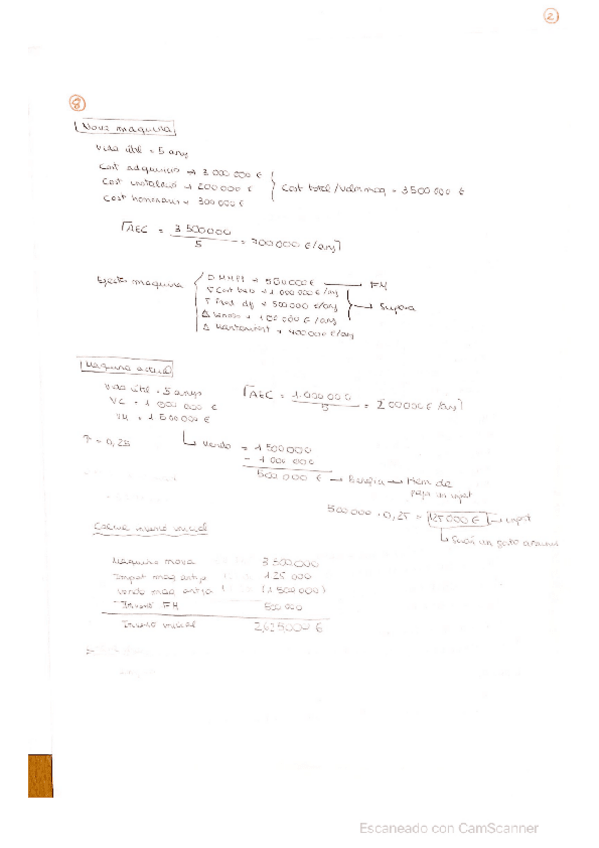 2
8
Nova maquina
Vida útil = 5 anys
Cost adquisició → 3 000 000 €
Cost instalació → 200 000 €
Cost honoraris → 300 000 €
Cost total / valor maq = 3 500 000 €
AEC = 3 500000 / 5 = 700 000 €/any
Efecte maquina
→ 500 000 € → FM
∇ Cost → 1 000 000 €/any
∇ → 500 000 €/any
Δ → €/any
Δ Manteniment → 400 000 €/any
→ Suposa
Maquina actual
Vida útil = 5 anys
AEC = 1.000 000 / 5 = 200000 €/any
VC = 1 000 000 €
VM = 1 500 000 €
T = 0,25
Venda = 1 500 000
- 1 000 000
500 000 € → Benefici → Hem de
pagar un impost
500 000 · 0,25 = 125 000 € → impost
↳ Serán un
inversió inicial
Maquina nova 3 500.000
Impost maq antiga 125 000
Venda maq antiga (1 500 000)
Inversió FM 500 000
Inversió inicial 2,625,000 €
Escaneado con CamScanner